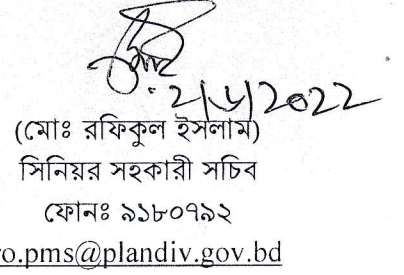 (মোঃ রফিকুল ইসলাম)
সিনিয়র সহকারী সচিব
ফোনঃ ৯১৮০৭৯২
ro.pms@plandiv.gov.bd